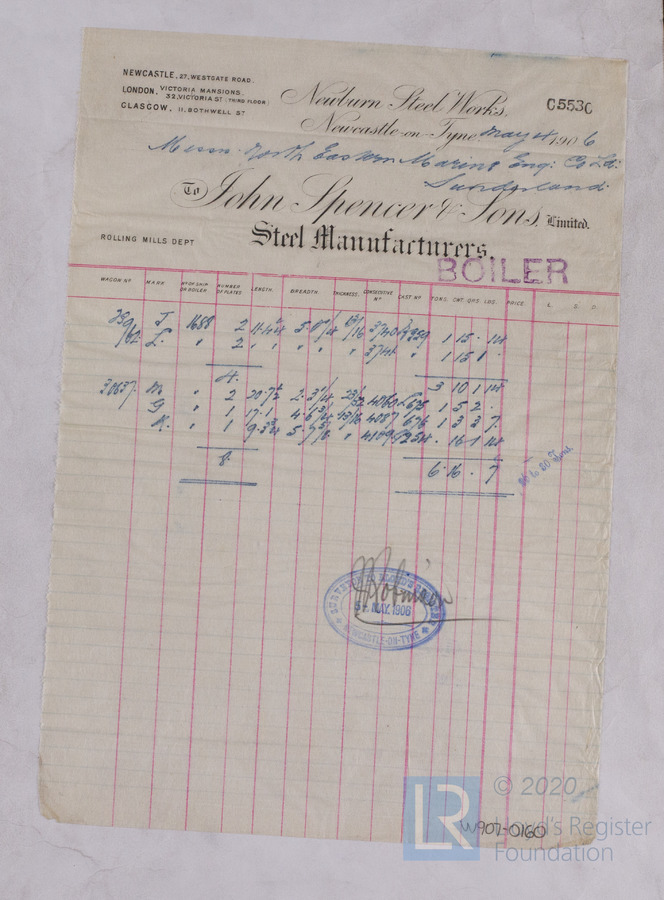 NEWCASTLE, 27, WESTGATE ROAD.
LONDON, VICTORIA MANSIONS.
32, VICTORIA ST (THIRD FLOOR)
GLASGOW, 11, BOTHWELL ST
Newburn Steel Works,
05530
Newcastle-on-Tyne, May 4 1906
Messrs North Eastern Marine Eng: Co Ld:
Sunderland
To John Spencer & Sons, Limited.
ROLLING MILLS DEPT
Steel Manufacturers.
BOILER
WAGON Nº MARK Nº OF SHIP OR BOILER NUMBER OF PLATES LENGTH. BREADTH. THICKNESS. CONSECUTIVE Nº CAST Nº TONS. CWT. QRS. LBS. PRICE. £. S. D.
J 1688 2 1 15 . 14
L " 2 " " " " 3741 " 1 15 1 .
4. 3 10 1 14
30637. M " 2 4060 1 5 2 .
G " 1 17.1 13/16 4087 676 1 3 3 7.
K " 1 " . 16 1 14
8 6 16 . 7
26 to 30 Tons.
5 - MAY. 1906
NEWCASTLE-ON-TYNE
LR © 2020
Lloyd's Register
Foundation
W907-0160